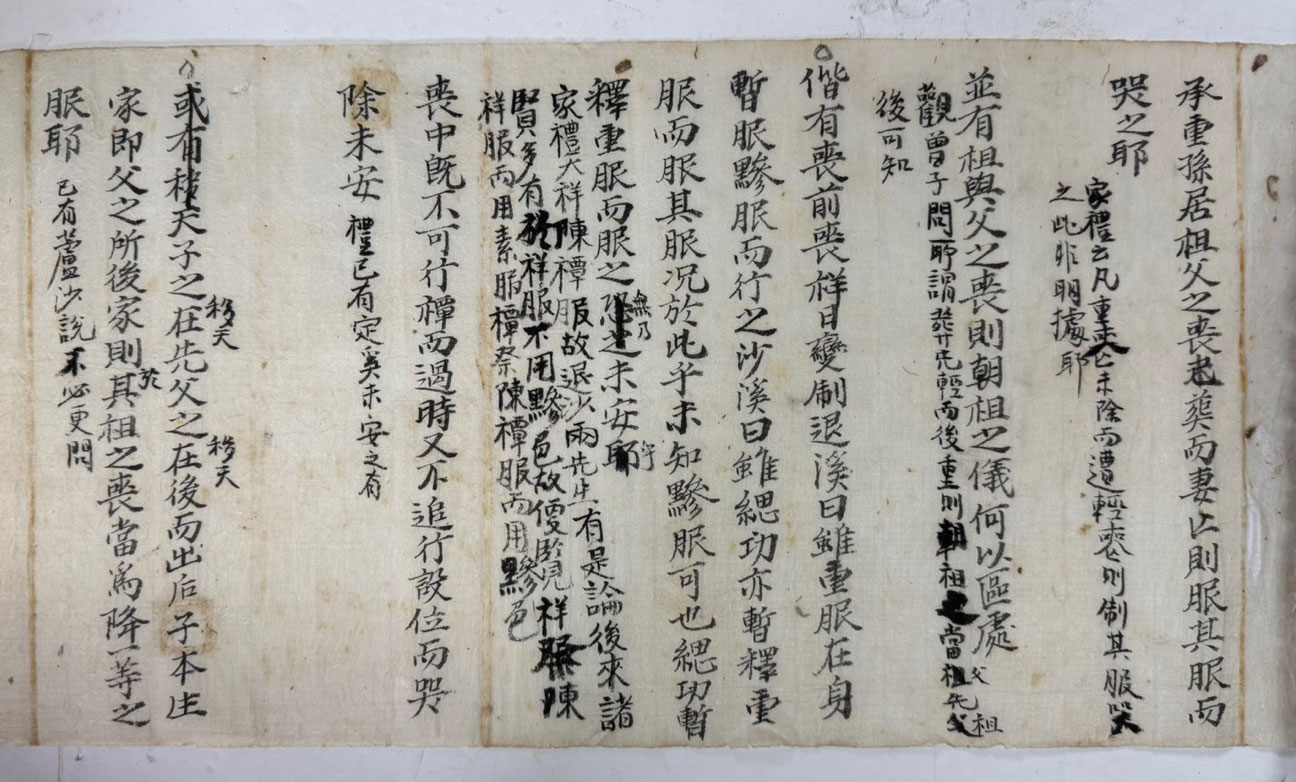 承重孫居祖父之喪未葬而妻亡則服其服而
哭之耶
家禮云凡重喪未除而遭輕喪則制其服哭
之此非明據耶
並有祖與父之喪則朝祖之儀何以區處
觀曾子問所謂葬先輕而後重則朝祖當祖先父
後可知
偕有喪前喪祥日變制退溪曰雖重服在身
暫服黲服而行之沙溪曰雖緦功亦暫釋重
服而服其服况於此乎未知黲服可也緦功暫
釋重服而服之無乃未安耶
家禮大祥陳禫服故退沙兩先生有是論後來諸
賢多有祥服不用黲色故便覽祥陳
祥服而用素服禫祭陳禫服而用黲色
喪中既不可行禫而過時又不追行設位而哭
除未安
禮已有定奚未安之有
或有移天子之在先父之在後而出后子本生
移天
移天
家即父之所後家則於其祖之喪當爲降一等之
服耶
已有蘆沙說不必更問